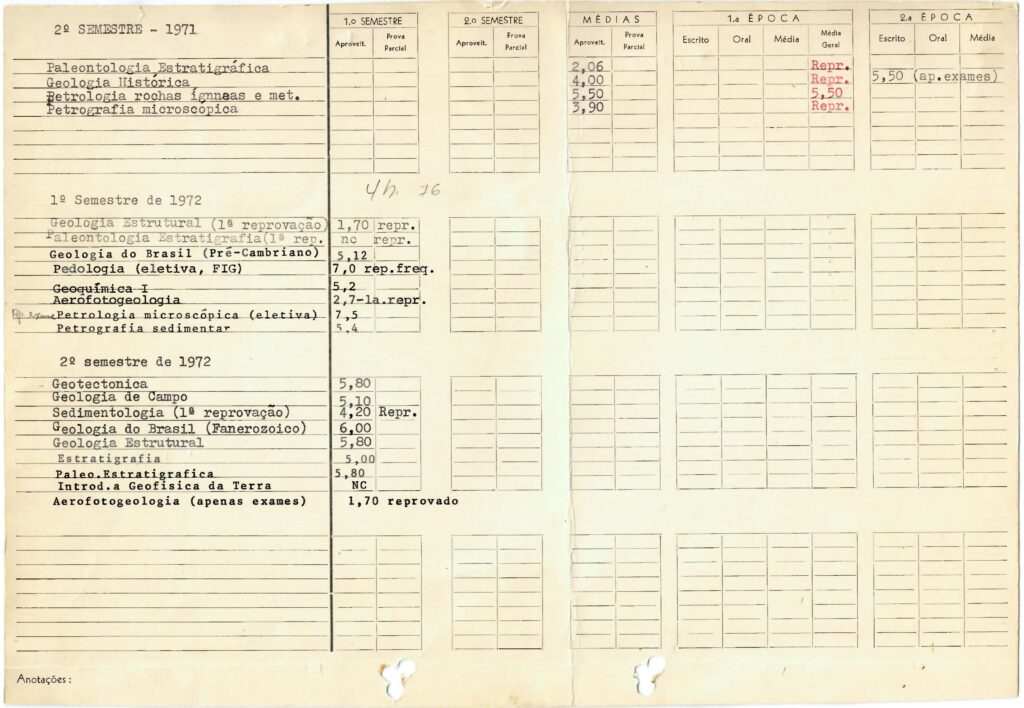 2º SEMESTRE - 1971
1.º SEMESTRE 2.º SEMESTRE MÉDIAS 1.a ÉPOCA 2.a ÉPOCA
Aproveit. Prova Parcial Aproveit. Prova Parcial Aproveit. Prova Parcial Escrito Oral Média Média Geral Escrito Oral Média
Paleontologia Estratigráfica 2,06 Repr.
Geologia Histórica 4,00 Repr. 5,50 (ap.exames)
Petrologia rochas ígnneas e met. 5,50 5,50
Petrografia microscópica 3,90 Repr.
1º Semestre de 1972
Geologia Estrutural (1ª reprovação) 1,70 repr.
Paleontologia Estratigrafia(1ª rep. nc repr.
Geologia do Brasil (Pré-Cambriano) 5,12
Pedologia (eletiva, FIG) 7,0 rep.freq.
Geoquímica I 5,2
Aerofotogeologia 2,7-1a.repr.
Petrologia microscópica (eletiva) 7,5
Petrografia sedimentar 5.4
2º semestre de 1972
Geotectonica 5,80
Geologia de Campo 5,10
Sedimentologia (1ª reprovação) 4,20 Repr.
Geologia do Brasil (Fanerozoico) 6,00
Geologia Estrutural 5,80
Estratigrafia 5,00
Paleo.Estratigrafica 5,80
Introd.a Geofisica da Terra NC
Aerofotogeologia (apenas exames) 1,70 reprovado
Anotações :